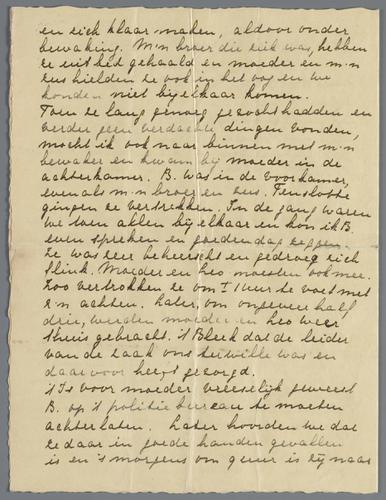 en zich klaar maken, aldoor onder
bewaking. M'n broer die ziek was, hebben
ze uit bed gehaald en moeder en m'n
zus hielden ze ook in het oog en we
konden niet bij elkaar komen.
Toen ze lang genoeg gezocht hadden en
verder geen verdachte dingen vonden,
mocht ik ook naar binnen met m'n
bewaker en kwam bij moeder in de
achterkamer. B. was in de voorkamer,
evenals m'n broer en zus. Tenslotte
gingen ze vertrekken. In de gang waren
we toen allen bij elkaar en kon ik B.
even spreken en goedendag zeggen.
Ze was zeer beheerscht en gedroeg zich
flink. Moeder en heo moesten ook mee.
Zoo vertrokken ze om 1 uur te voet met
z'n achten. Later, om ongeveer half
drie, werden moeder en heo weer
thuis gebracht. 't Bleek dat de leider
van de zaak ons terwille was en
daarvoor heeft gezorgd.
't Is voor moeder vreeselijk geweest
B. op 't politiebureau te moeten
achterlaten. Later hoorden we dat
ze daar in goede handen gevallen
is en 's morgens om 9 uur is zij naar